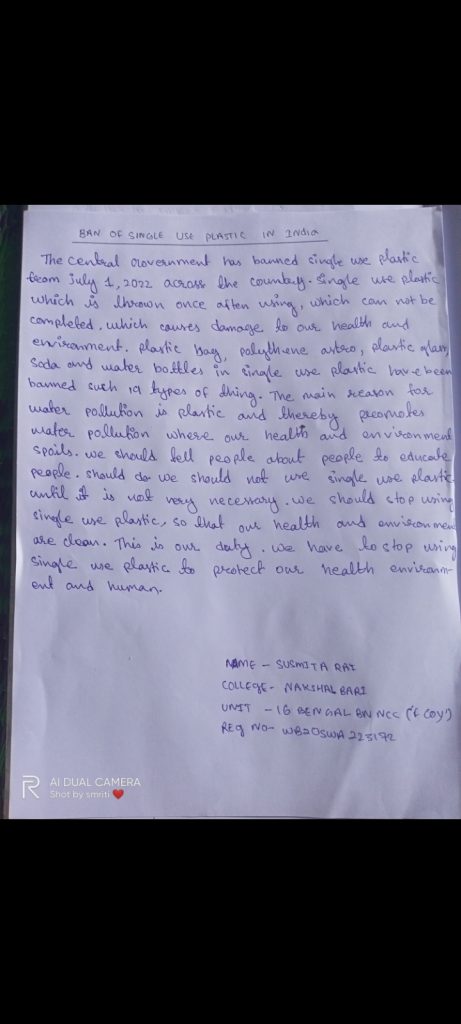 BAN OF SINGLE USE PLASTIC IN INDIA
The central Government has banned single use plastic
from july 1, 2022 across the country. single use plastic
which is thrown once after using, which can not be
completed. which causes damage to our health and
environment. plastic bag, polythene astro, plastic glass,
soda and water bottles in single use plastic have been
banned such 19 types of thing. The main reason for
water pollution is plastic and thereby promotes
water pollution where our health and environment
spoils. we should tell people about people to educate
people. should do we should not use single use plastic
until it is not very necessary. we should stop using
single use plastic, so that our health and environment
are clean. This is our duty. we have to stop using
single use plastic to protect our health environm-
ent and human.
NAME - SUSMITA RAI
COLLEGE - NAKSHALBARI
UNIT - 16 BENGAL BN NCC ('F COY')
REG NO- WB20SWA223192
AI DUAL CAMERA
Shot by smriti ❤️